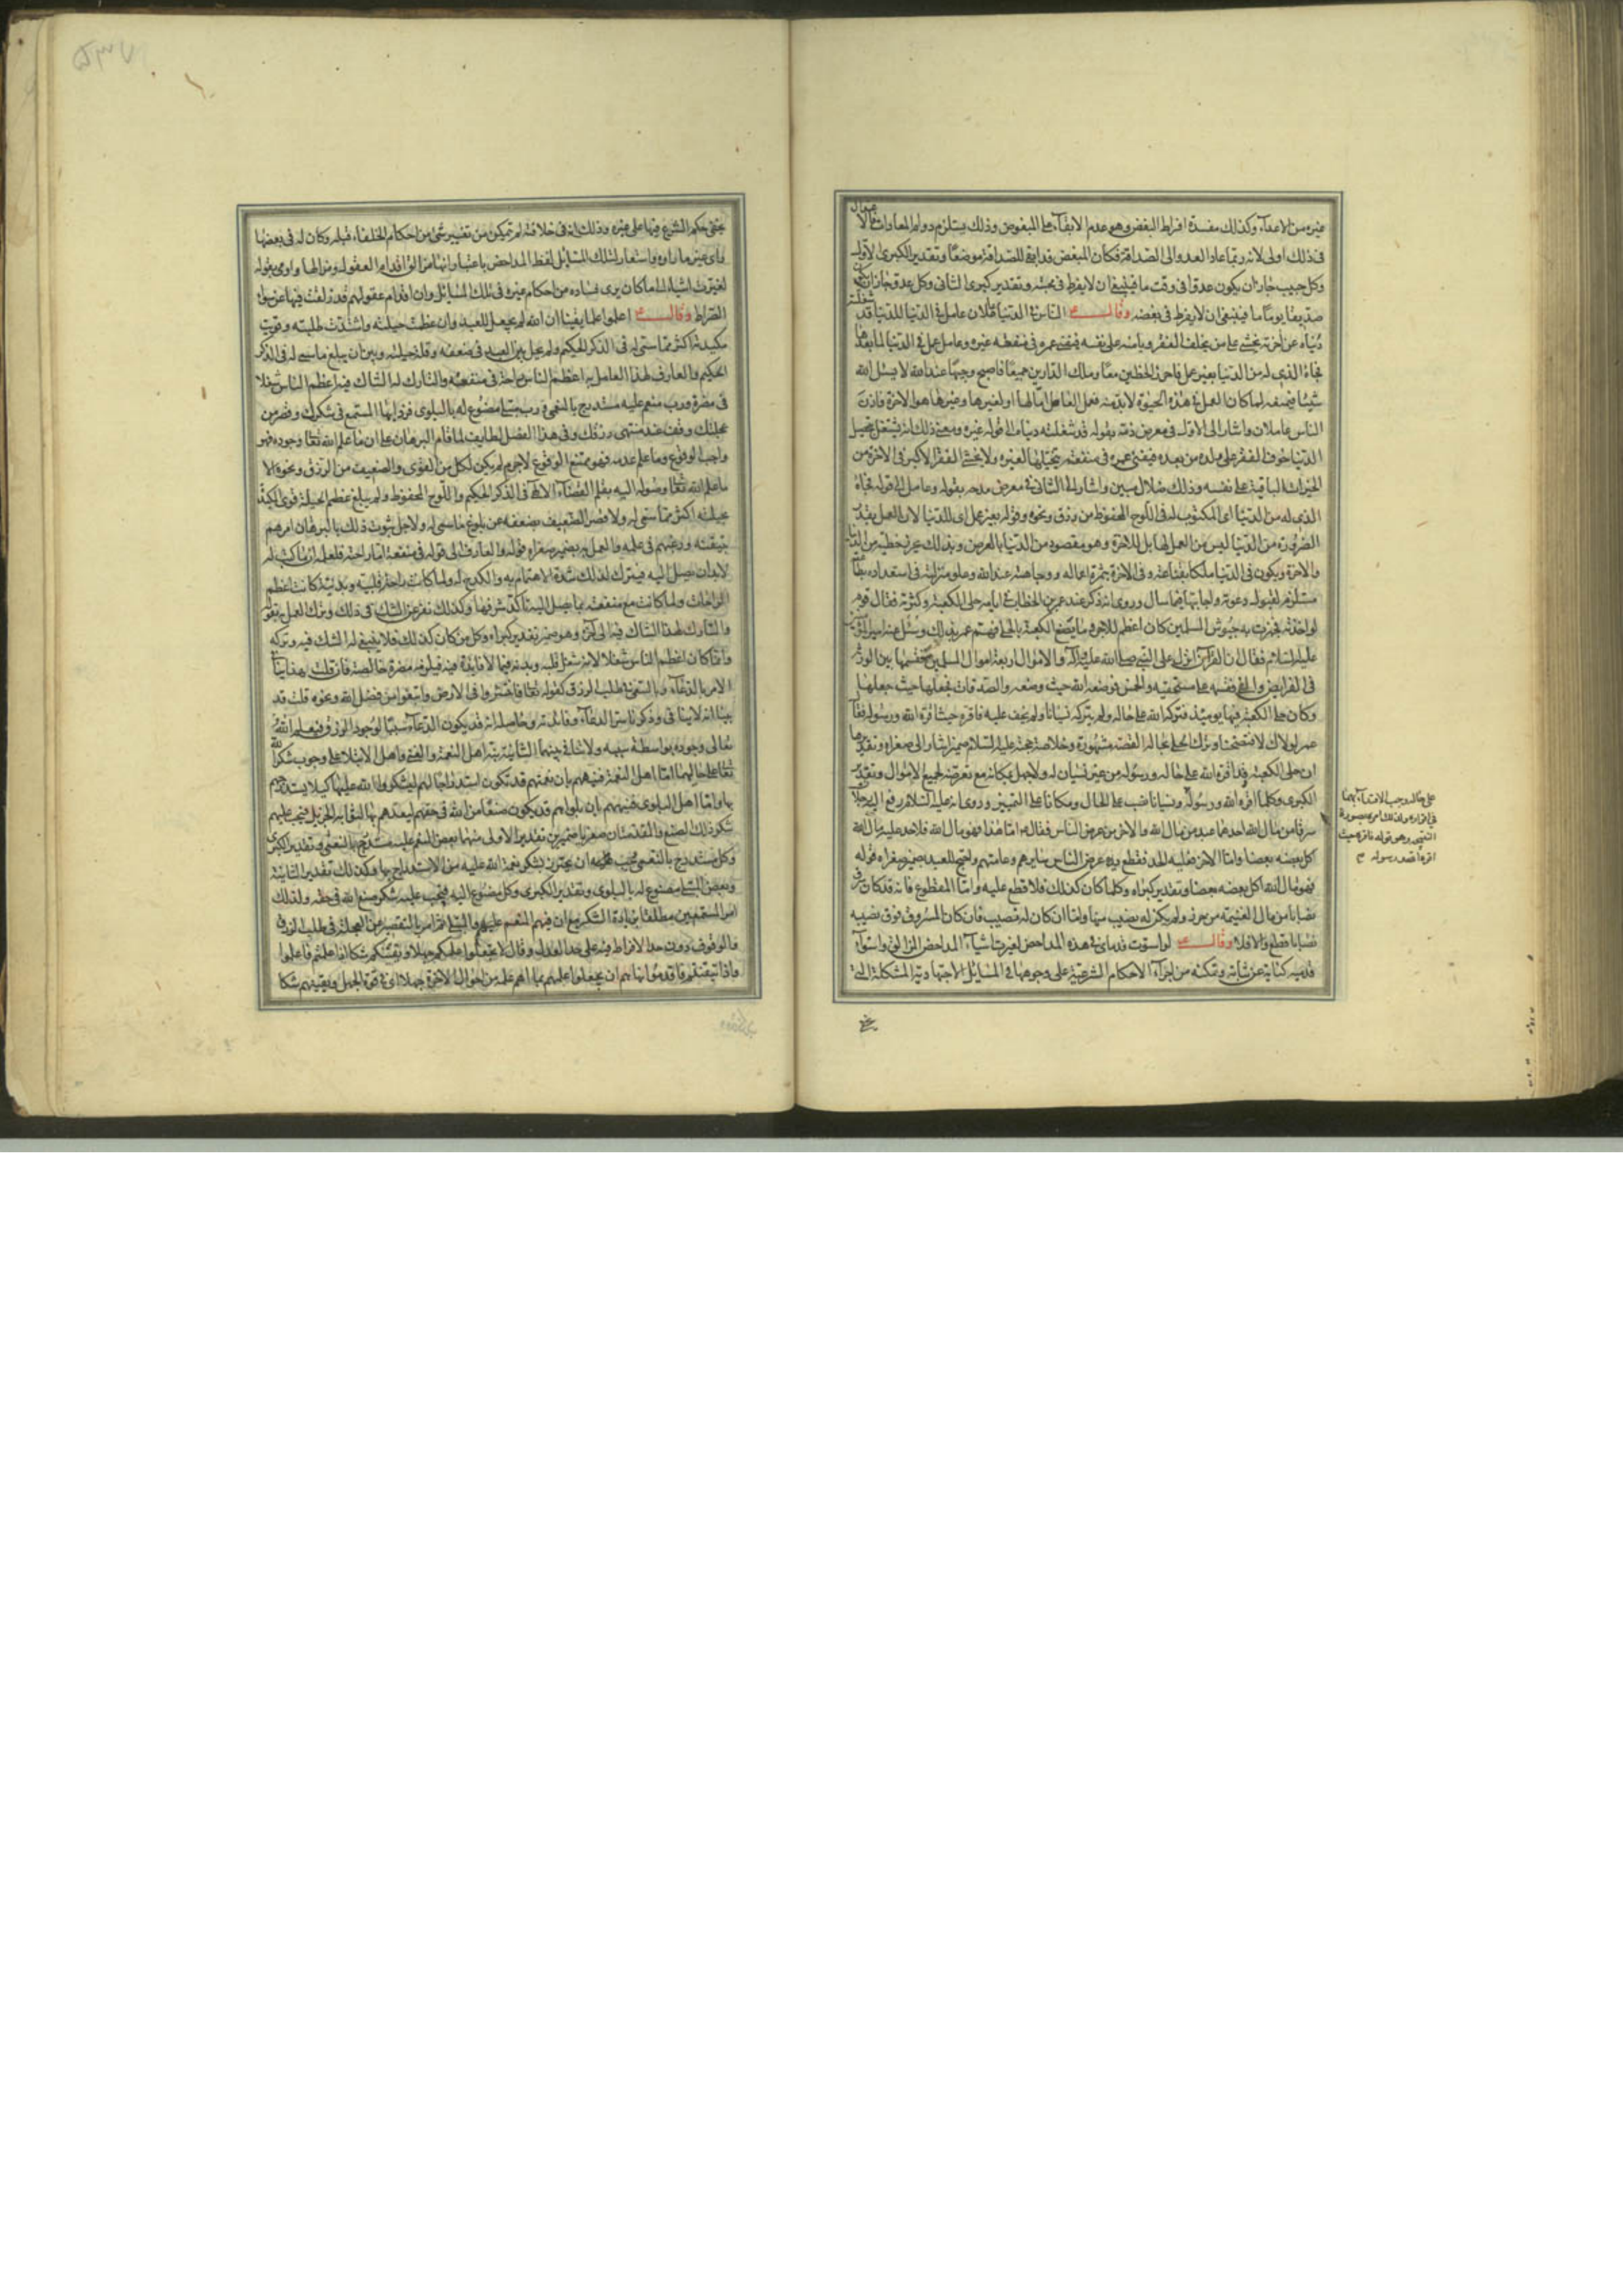 غيره من الاعداء وكذلك مفسدة افراط البغض وهو عدم الابقاء على المبغوض وذلك يستلزم دوام المعاداة
في ذلك اولى لانه ربما عاد العدو الى الصداقة فكان للصداقة موضعا وتقدير الكبرى الاولى
وكل حبيب جاز ان يكون عدوا في وقت ما فينبغي ان لا يفرط في محبته وتقدير كبرى الثاني وكل عدو جاز ان يكون
صديقا يوما ما فينبغي ان لا يفرط في بغضه وقال ع الناس في الدنيا عاملان عامل في الدنيا للدنيا قد شغلته
دنياه عن اخرته يخشى على من يخلف الفقر ويامنه على نفسه فيفني عمره في منفعة غيره وعامل عمل في الدنيا لما بعدها
فجاءه الذي له من الدنيا بغير عمل فاحرز الحظين معا وملك الدارين جميعا فاصبح وجيها عند الله لا يسئل الله
شيئا فيمنعه لما كان العمل في هذه الحيوة لا بد منه فعمل العامل اما لها او لغيرها وغيرها هو الاخرة فاذن
الناس عاملان واشار الى الاول في معرض ذمه بقوله قد شغلته دنياه الى قوله غيره ومعنى ذلك انه يشتغل بتحصيل
الدنيا خوف الفقر على ولده من بعده فيفني عمره في منفعة لغيره ولا يخشى الفقر الاكبر في الاخرة من
الخيرات الباقية على نفسه وذلك ضلال مبين واشار الى الثاني في معرض مدحه بقوله وعامل الى قوله فجاءه
الذي له من الدنيا اي المكتوب له في اللوح المحفوظ من رزق ونحوه وقوله بغير عمل اي للدنيا لان العمل بقدر
الضرورة من الدنيا ليس من العمل لها بل للاخرة وهو مقصود من الدنيا بالعرض وبذلك يحرز حظيه من الدنيا
والاخرة ويكون في الدنيا ملكا بقناعته وفي الاخرة بثمرة اعماله ووجاهته عند الله وعلو منزلته في استعداده
مستلزم لقبوله دعوته واجابتها فيما سال وروى انه ذكر عند عمر بن الخطاب في ايامه حلى الكعبة وكثرته فقال قوم
لو اخذته فجهزت به جيوش المسلمين كان اعظم للاجر وما تصنع الكعبة بالحلى فهم عمر بذلك وسئل عنه امير المؤمنين
عليه السلام فقال ان القران انزل على النبي صلى الله عليه واله والاموال اربعة اموال المسلمين فقسمها بين الورثة
في الفرايض والفيء فقسمه على مستحقيه والخمس فوضعه الله حيث وضعه والصدقات فجعلها حيث جعلها
وكان حلى الكعبة فيها يومئذ فتركه الله على حاله ولم يتركه نسيانا ولم يخف عليه فاقره حيث اقره الله ورسوله فقال
عمر لولاك لافتضحنا وترك الحلى بحاله القصة مشهورة وخلاصة حجته عليه السلام ضمير اشار الى صغراه وتقديرها
ان حلى الكعبة قد اقره الله على حاله ورسوله من غير نسيان له ولا جهل بمكانه مع تعرضه لجميع الاموال وتقدير
الكبرى وكلما اقره الله ورسوله ونسيانا نصب على الحال ومكانا على التمييز وروى انه عليه السلام رفع اليه رجلان
سرقا من مال الله احدهما عبد من مال الله والاخر من عرض الناس فقال ع اما هذا فهو مال الله فلا حد عليه مال الله
اكل بعضه بعضا واما الاخر فعليه الحد فقطع يده عرض الناس سايرهم وعامتهم واحتج للعبد بضمير صغراه قوله
فهو مال الله اكل بعضه بعضا وتقدير كبراه وكلما كان كذلك فلا قطع عليه واما المقطوع فانه قد كان سرق
نصابا من مال الغنيمة من حرز ولم يكن له نصيب منها واما ان كان له نصيب فان كان المسروق فوق نصيبه
نصابا قطع والا فلا وقال ع لو استوت قدماي في هذه المداحض لغيرت اشياء المداحض المزالق واستواء
قدميه كناية عن ثباته وتمكنه من اجراء الاحكام الشرعية على وجوهها في المسايل الاجتهادية المشكلة التي
على حاله وجب الاقتداء بهما
في اقراره
النتيجة وهو قوله فاقره حيث
اقره الله ورسوله
يخفى حكم الشرع فيها على غيره وذلك انه في خلافته لم يتمكن من تغيير شيء من احكام الخلفاء قبله وكان له في بعضها
راي غير ما راوه واستعار لتلك المسائل لفظ المداحض باعتبار انها مزالق اقدام العقول ومزالها واومى بقوله
لغيرت اشياء الى ما كان يرى فساده من احكام غيره في تلك المسائل وان اقدام عقولهم قد زلقت فيها عن سواء
الصراط وقال ع اعلموا علما يقينا ان الله لم يجعل للعبد وان عظمت حيلته واشتدت طلبته وقويت
مكيدته اكثر مما سمي له في الذكر الحكيم ولم يحل بين العبد في ضعفه وقلة حيلته وبين ان يبلغ ما سمي له في الذكر
الحكيم والعارف لهذا العامل به اعظم الناس راحة في منفعته والتارك له الشاك فيه اعظم الناس شغلا
في مضرة ورب منعم عليه مستدرج بالنعمى ورب مبتلى مصنوع له بالبلوى فزد ايها المستمع في شكرك وقصر من
عجلتك وقف عند منتهى رزقك وفي هذا الفصل لطايف لما قام البرهان على ان ما علم الله تعالى وجوده فهو
واجب الوقوع وما علم عدمه فهو ممتنع الوقوع لا جرم لم يكن لكل من القوى والضعيف من الرزق ونحوه الا
ما علم الله تعالى وصوله اليه بقلم القضاء الالهي في الذكر الحكيم واللوح المحفوظ ولم يبلغ عظيم الحيلة قوى المكيدة
بحيلته اكثر مما سمي له ولا قصر الضعيف بضعفه عن بلوغ ما سمي له ولاجل ثبوت ذلك بالبرهان امرهم
بتيقنه ورغبهم في علمه والعمل به بضمير صغراه قوله والعارف الى قوله في منفعة اما راحته فلعلمه ان ما كتب له
لا بد ان يصل اليه فيترك لذلك شدة الاهتمام به والكدح له ولما كانت راحة قلبية وبدنية كانت اعظم
الراحات ولما كانت مع منفعته بما يصل اليه تاكد شرفها وكذلك نفر عن الشك في ذلك وترك العمل به بقوله
والتارك لهذا الشاك فيه الى اخره وهو ضمير تقدير كبراه وكل من كان كذلك فلا ينبغي له الشك فيه وتركه
وانما كان اعظم الناس شغلا لانه شغل قلبه وبدنه فيما لا فايدة فيه فيلزمه مضرة خالصة فان قلت هذا ينافي
الامر بالدعاء وبالسعي في طلب الرزق كقوله تعالى فانتشروا في الارض وابتغوا من فضل الله ونحوه قلت قد
بينا انه لا ينافي وذكرنا سر الدعاء وفائدته وحاصله انه قد يكون الدعاء سببا لوجود الرزق فيعلم الله
تعالى وجوده بواسطة سببه ولا تنافي بينهما الثانية نبه اهل النعمة والغنى واهل الابتلاء على وجوب شكر الله
تعالى على حاليهما اما اهل النعمة فنبههم بان نعمتهم قد تكون استدراجا لهم ليشكروا الله عليها كيلا يستدرجهم
بها واما اهل البلوى فنبههم بان بلواهم قد يكون صنعا من الله في حقهم ليعدهم بها للثواب الجزيل فيجب عليهم
شكر ذلك الصنع والمقدمتان صغريا ضميرين تقدير الاولى منهما بعض المنعم عليه مستدرج بالنعمى وتقدير الكبرى
وكل مستدرج بالنعمى فيجب ان يحترز بشكر نعمة الله عليه من الاستدراج بها وكذلك تقدير الثانية
وبعض المبتلى مصنوع له بالبلوى وتقدير الكبرى وكل مصنوع اليه فيجب عليه شكر صنع الله في حقه ولذلك
امر المستمعين مطلقا بزيادة الشكر مع ان فيهم المنعم عليهم والمبتلى ثم امر بالتقصير من العجلة في طلب الرزق
والوقوف دون حد الافراط فيه على حد العدل وقال لا تجعلوا علمكم جهلا ويقينكم شكا اذا علمتم فاعملوا
واذا تيقنتم فاقدموا نهاهم ان يجعلوا علمهم بما اهم علمه من احوال الاخرة جهلا اي في قوة الجهل ويقينهم شكا